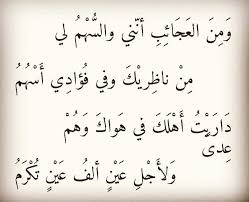 وَمِنَ العَجَائِبِ أنّني والسُّهْمُ لي
مِنْ ناظِرِيْكَ وفي فُؤَادِي أَسْهُمُ
دَارَيْتُ أَهْلَكَ في هَواكَ وَهُمْ
عِدىً
وَلأَجْلِ عَيْنٍ ألفُ عَيْنٍ تُكْرَمُ